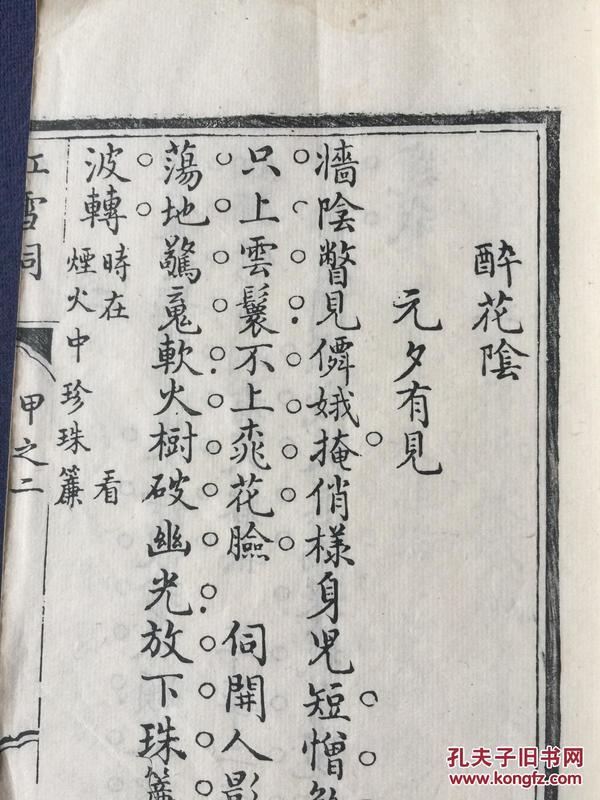 醉花陰
元夕有見
牆陰瞥見僲娥掩俏樣身兒短憎
只上雲鬟不上桃花臉 伺開人影
蕩地驚䰟軟火樹破幽光放下珠簾
波轉
時在 看
煙火中珍珠簾
紅雪詞
甲之二
孔夫子旧书网
www.kongfz.com